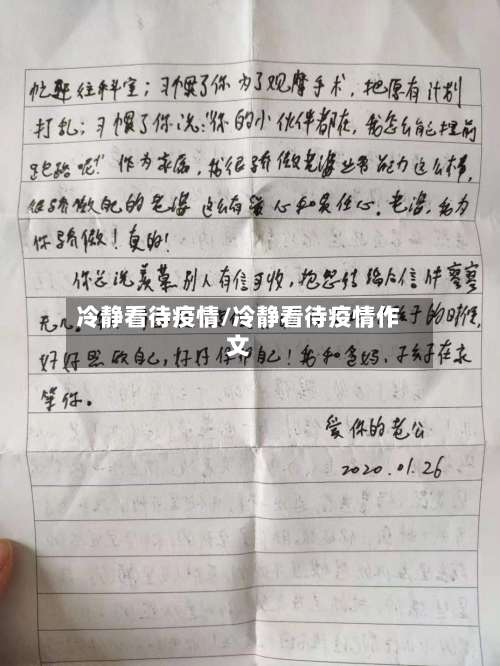 忙跑往科室；习惯了你为了观摩手术，把原有计划
打乱；习惯了你说："你的小伙伴都在，我怎么自己提前
跑路呢！"作为家属，我很骄傲老婆业务能力这么棒，
很骄傲自己的老婆这么有爱心和责任心。老婆，我为
你骄傲！真的！
你总说羡慕别人有信可收，抱怨结婚后信件寥寥
无几。
冷静看待疫情/冷静看待疫情作
文
子的时候，
好好照顾自己，好好保护自己！我和爸妈、孩子在家
等你。
爱你的老公
2020.01.26